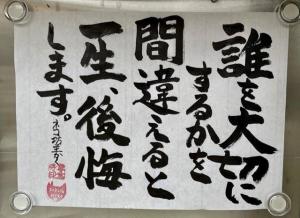 誰を大切に
するかを
間違えると
一生、後悔
します。